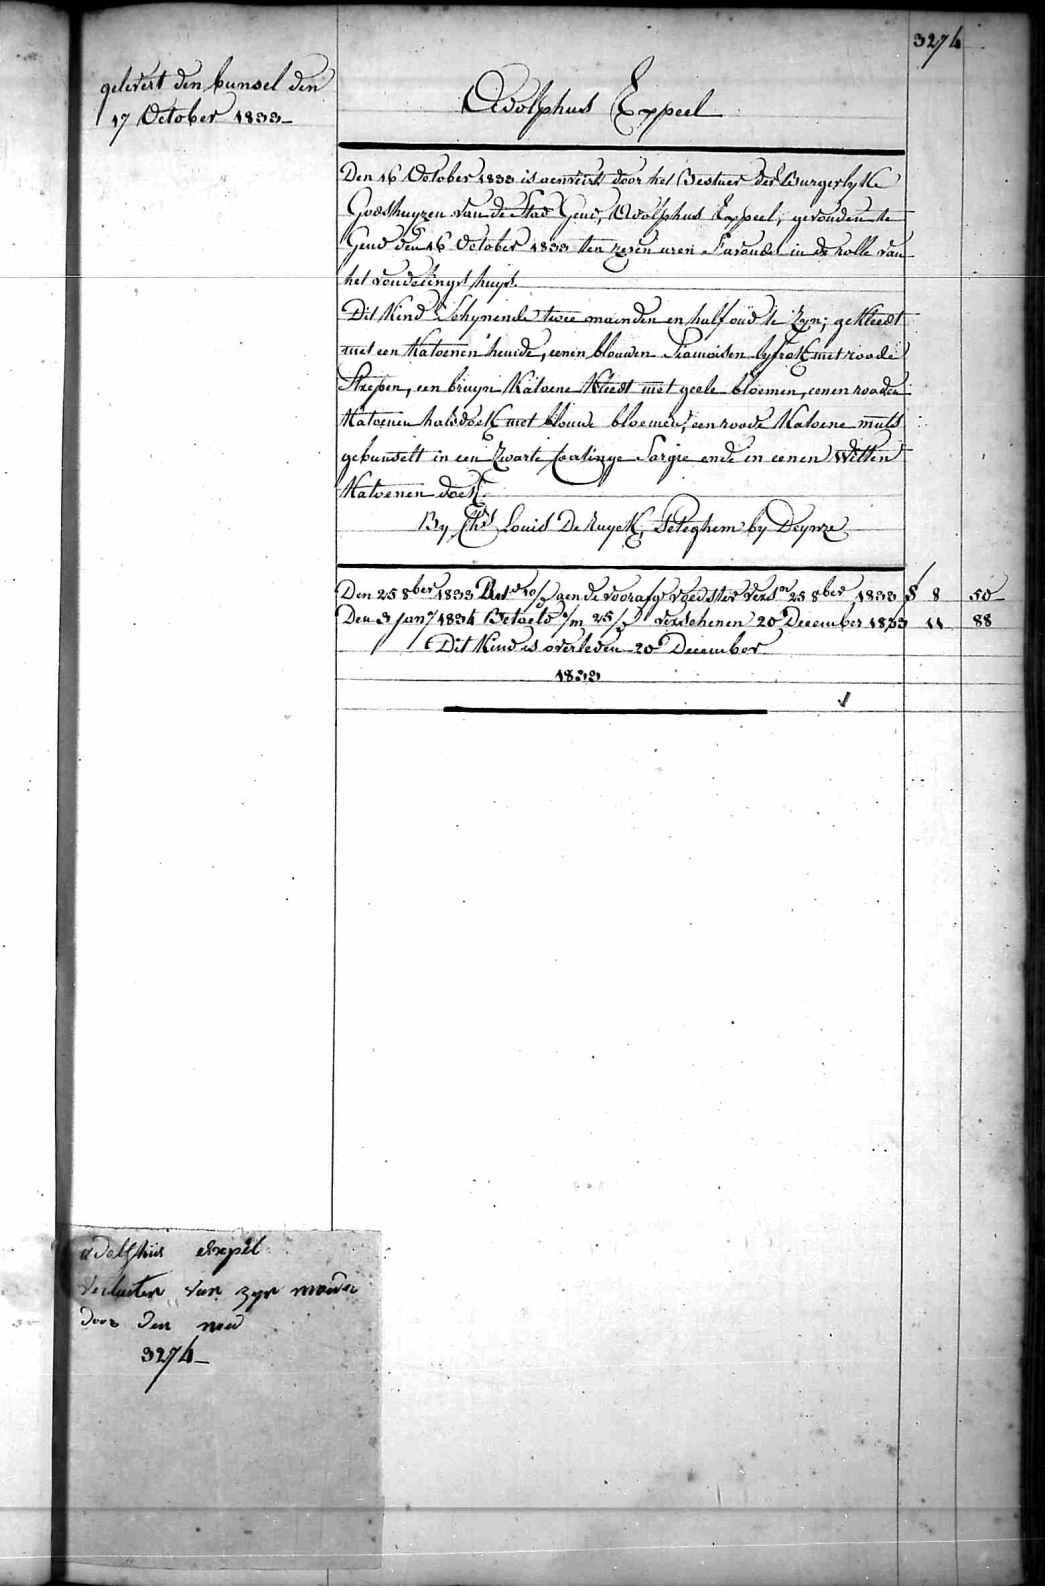 3274
gelevert den bunsel den
17 October 1833
Adolphus Exppeel
Den 16 October 1833 is aenveirt door het Bestuer der Burgerlyke
Godshuyzen van de Stad Gend, Adolphus Exppeel, gevonden te
Gend den 16 October 1833 ten zeven uren s'avonds in de rolle van
het vondelingshuys.
Dit Kind Schynende twee maenden en half oud te Zyn; gekleedt
met een Katoenen hemde, eenen blouwen Siamoisen lyfrok met roode
Strepen, een bruyn Katoene Kleedt met geele bloemen, eenen rooden
Katoenen halsdoek met blouwe bloemen, een roode Katoene muts
gebunselt in een Zwarte Sargie ende in eenen Witten
Katoenen doek.
By Chs Louis De Ruyck, Peteghem by Deynze
Den 25 8ber 1833 gen de voorafge Voedster 25 8ber 1833 8 50
Den 3 Jany 1834 Betaeld 25/ verschenen 20 December 1833 11 88
Dit Kind is overleden 20 December
1833
adolphus expel
verlaeten van zyn moeder
door den nood
3274